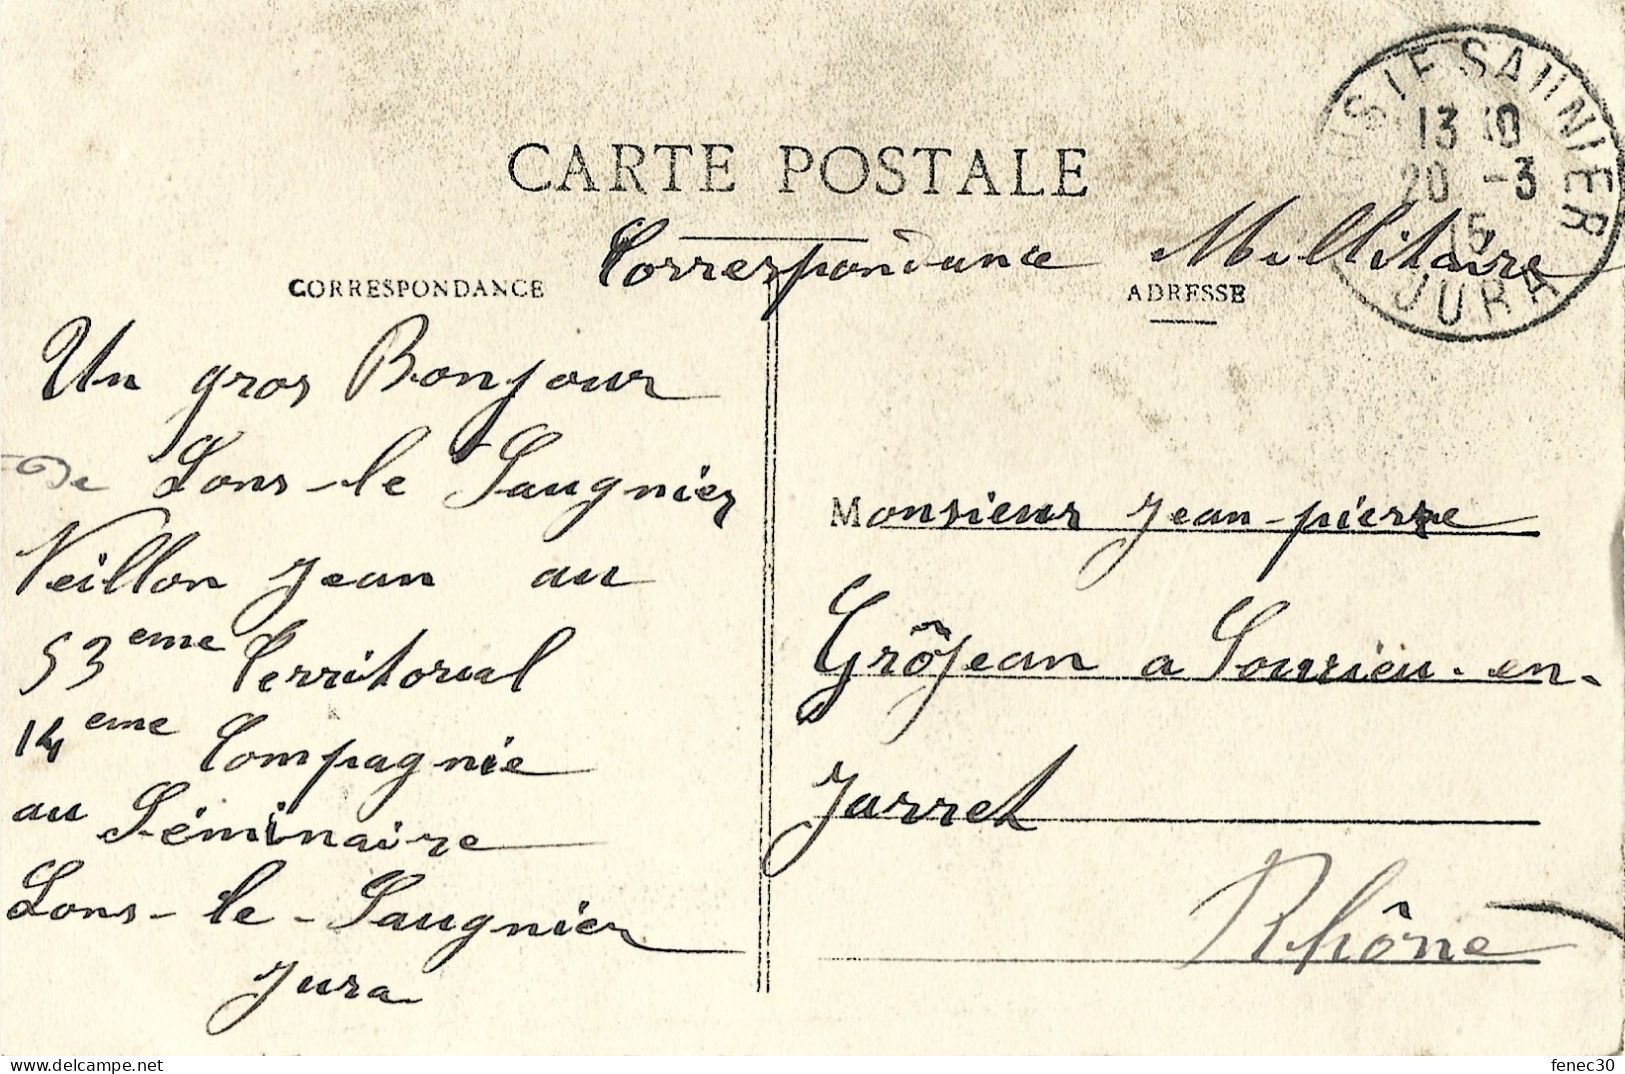 CARTE POSTALE
Correspondance Millitaire
CORRESPONDANCE
ADRESSE
LONS LE SAUNIER
13 10
20 -3
15
JURA
Un gros Bonjour
de Lons-le Saugnier
Veillon Jean au
53eme Territorial
14eme Compagnie
au Séminaire
Lons-le-Saugnier
Jura
Monsieur Jean-pierre
Grôjean a Sourieu-en-
Jarret
Rhône
https://www.delcampe.net
fenec30